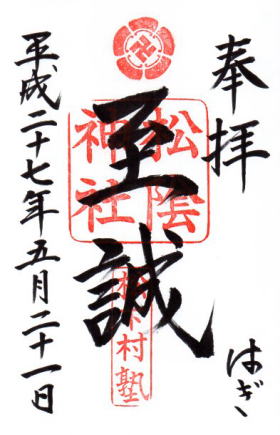 奉拝
はぎ
至誠
松陰
神社
松下村塾
平成二十七年五月二十一日